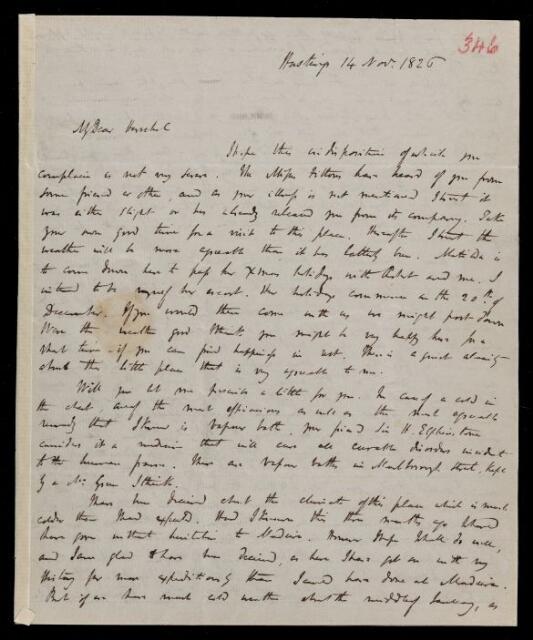 346
Hastings 14 Nov. 1826
My Dear Herschel
I hope the indisposition of which you
complain is not very severe. The Misses have heard of you from
some friend or other, and as your illness is not mentioned I trust it
was either slight or has already released you from its company. Take
your own good time for a visit to this place. the
weather will be more agreeable than it has lately been. Matilda is
to come down here to pass her Xmas holidays with and me. I
intend to be myself her escort. Her holidays commence on the 20th of
December. If you would then come with us we might post down
Were the weather good I think you might be very happy here for a
short time if you can find happiness in rest. There is a great
about this little place that is very agreeable to me.
Will you let me prescribe a little for you. In case of a cold in
the chest, one of the most efficacious as well as the most agreeable
remedy that I know is vapour bath. Your friend Sir H. Elphinstone
considers it a medicine that will cure all curable disorders incident
to the human frame. There are vapour baths in Marlborough Street, kept
by a Mr. Green I think.
I have been deceived about the climate of this place which is much
colder than I had expected. Had I known this three months ago I should
have gone without hesitation to Madeira. However I hope I shall do well,
and I am glad to have been deceived, as here I have got on with my
history far more expeditiously than I could have done at Madeira.
But if we have much cold weather about the middle of January, as